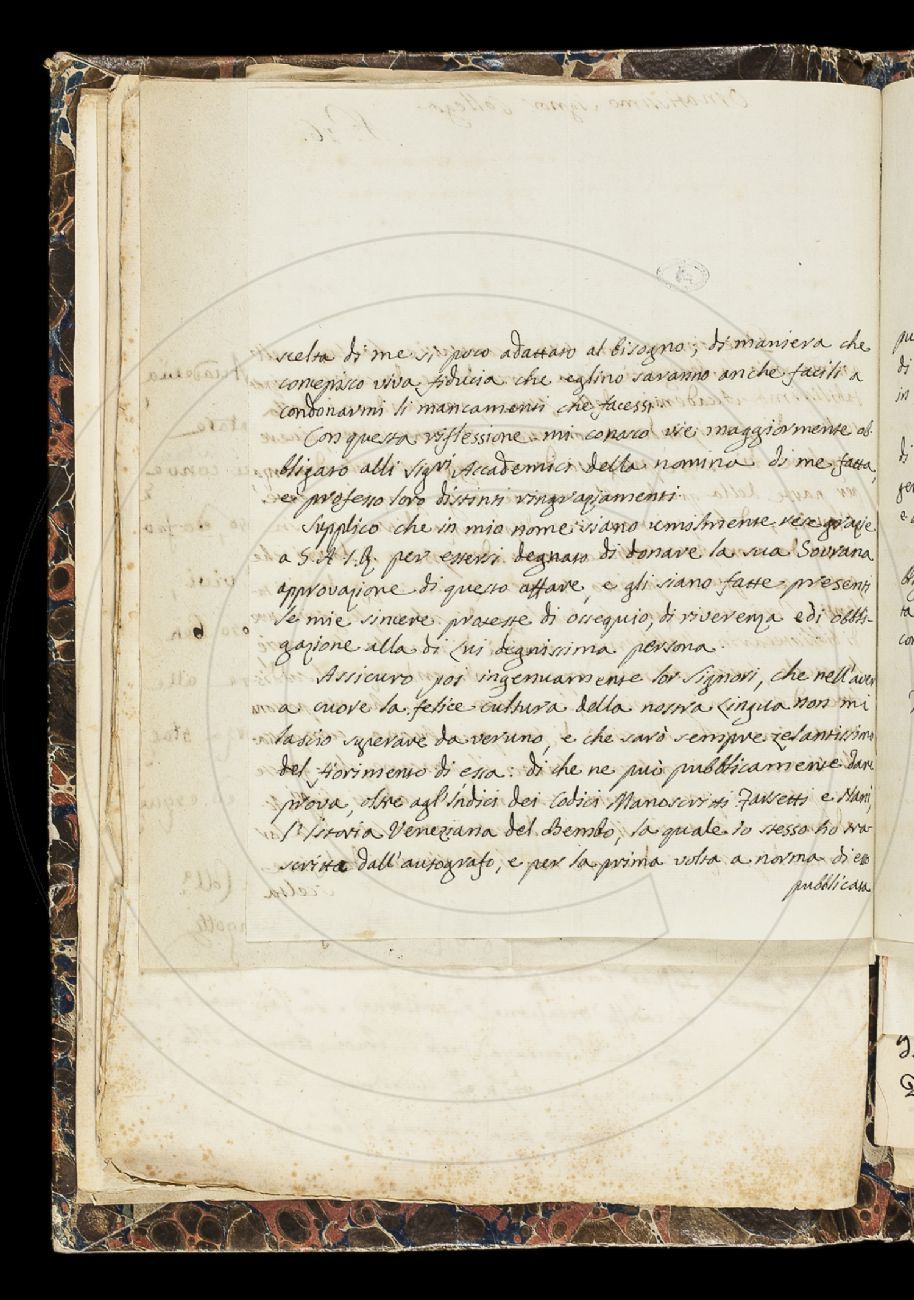 scelta di me sì poco adattato al bisogno; di maniera che
concepisco viva fiducia che eglino saranno anche facili a
condonarmi li mancamenti che facessi.
Con questa riflessione mi conosco vie maggiormente ob-
bligato alli Sigri Accademici della nomina di me fatta,
e professo loro distinti ringraziamenti.
Supplico che in mio nome siano umilmente rese grazie
a S. A. I. R. per essersi degnato di donare la sua Sovrana
approvazione di questo affare, e gli siano fatte presenti
le mie sincere proteste di ossequio, di riverenza e di obbli-
gazione alla di Lui degnissima persona.
Assicuro poi ingenuamente lor Signori, che nell'aver
a cuore la felice cultura della nostra Lingua non mi
lascio superare da veruno, e che sarò sempre zelantissimo
del fiorimento di essa: di che ne può pubblicamente dare
prova, oltre agl'Indici dei Codici Manoscritti Farsetti e Nani,
l'Istoria Veneziana del Bembo, la quale io stesso ho tra-
scritta dall'autografo, e per la prima volta a norma di esso
pubblicata